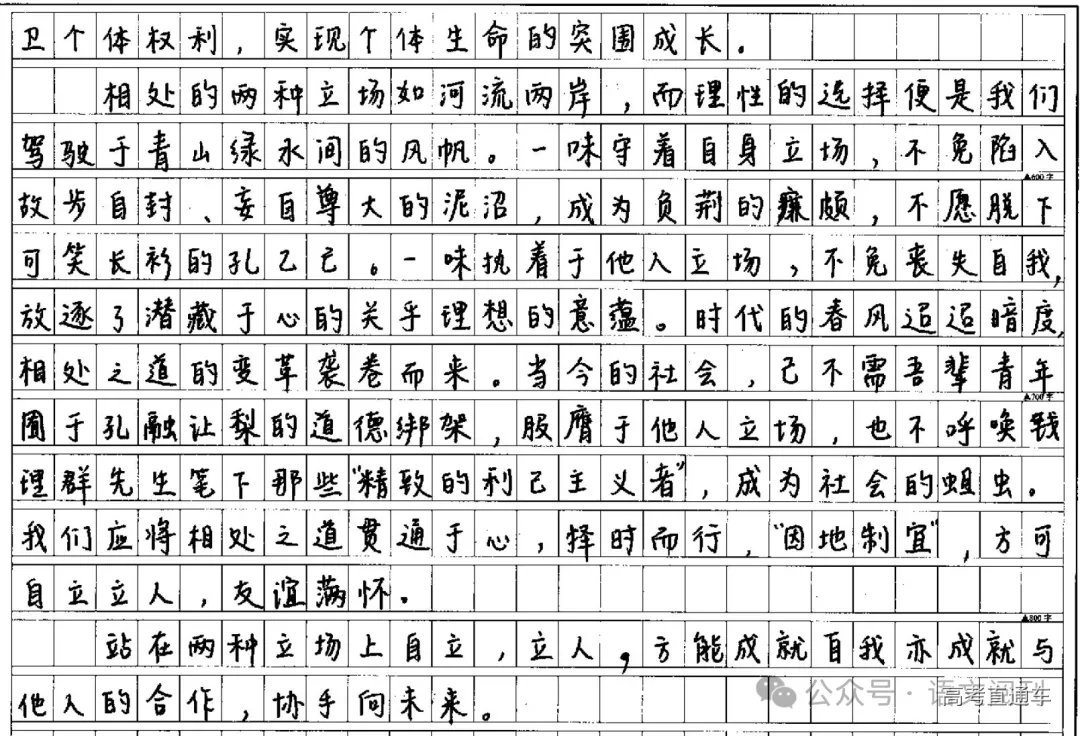 卫个体权利，实现个体生命的突围成长。
相处的两种立场如河流两岸，而理性的选择便是我们
驾驶于青山绿水间的风帆。一味守着自身立场，不免陷入
▲600字
故步自封、妄自尊大的泥沼，成为负荆的廉颇，不愿脱下
可笑长衫的孔乙己。一味执着于他人立场，不免丧失自我，
放逐了潜藏于心的关乎理想的意蕴。时代的春风迢迢暗度，
相处之道的变革袭卷而来。当今的社会，已不需吾辈青年
▲700字
囿于孔融让梨的道德绑架，服膺于他人立场，也不呼唤钱
理群先生笔下那些“精致的利己主义者”，成为社会的蛆虫。
我们应将相处之道贯通于心，择时而行，“因地制宜”，方可
自立立人，友谊满怀。
▲800字
站在两种立场上自立，立人，方能成就自我亦成就与
他人的合作，协手向未来。
公众号·语文
高考直通车